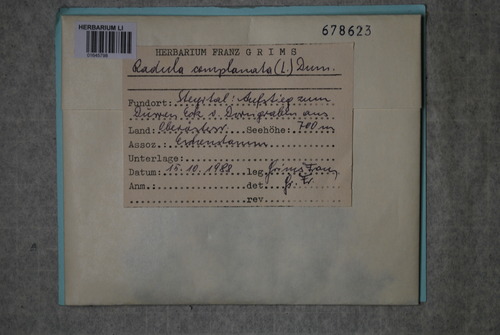 HERBARIUM LI
678623
HERBARIUM FRANZ GRIMS
Radula complanata (L.) Dum.
Fundort: Steyrtal: Aufstieg zum
Dürren Eck v. Dorngraben aus
Land: Oberösterr. Seehöhe: 700 m
Assoz.:
Unterlage:
Datum: 15.10.1988 leg. Grims Franz
Anm.: det. Gr. Fr.
rev.